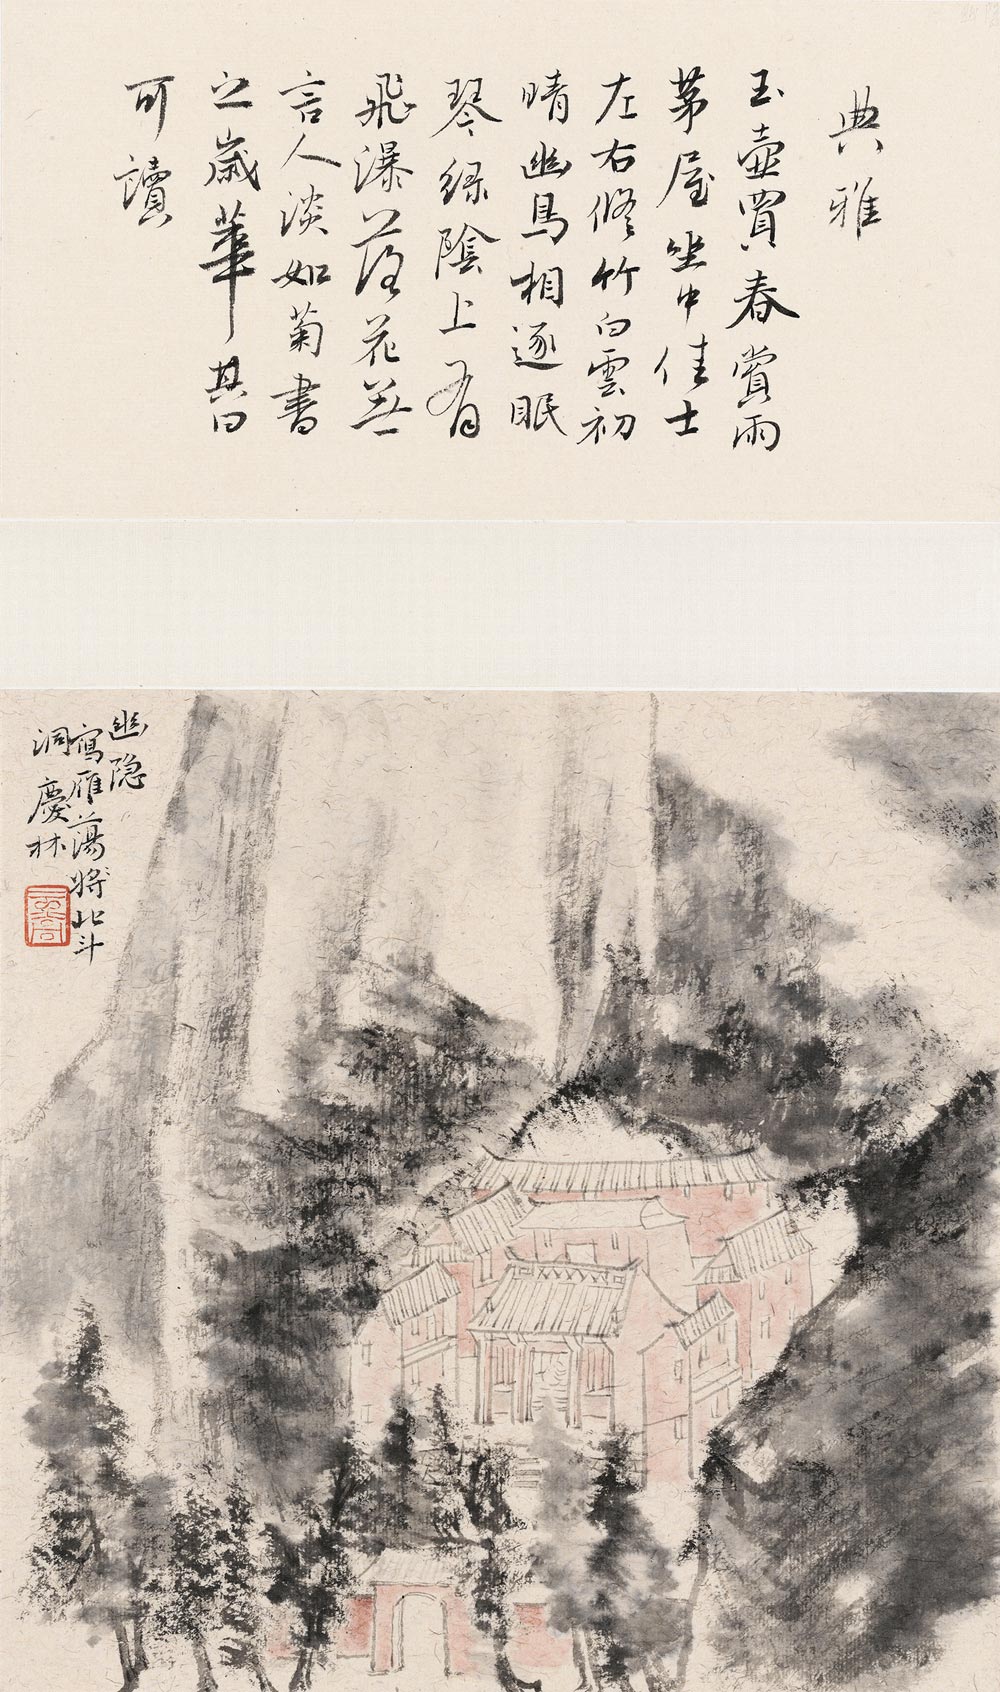 典雅
玉壶買春賞雨
茅屋坐中佳士
左右修竹白雲初
晴幽鳥相逐眠
琴綠陰上有
飛瀑落花無
言人淡如菊書
之歲華其曰
可讀
幽隐
寫雁蕩將北斗
洞慶林